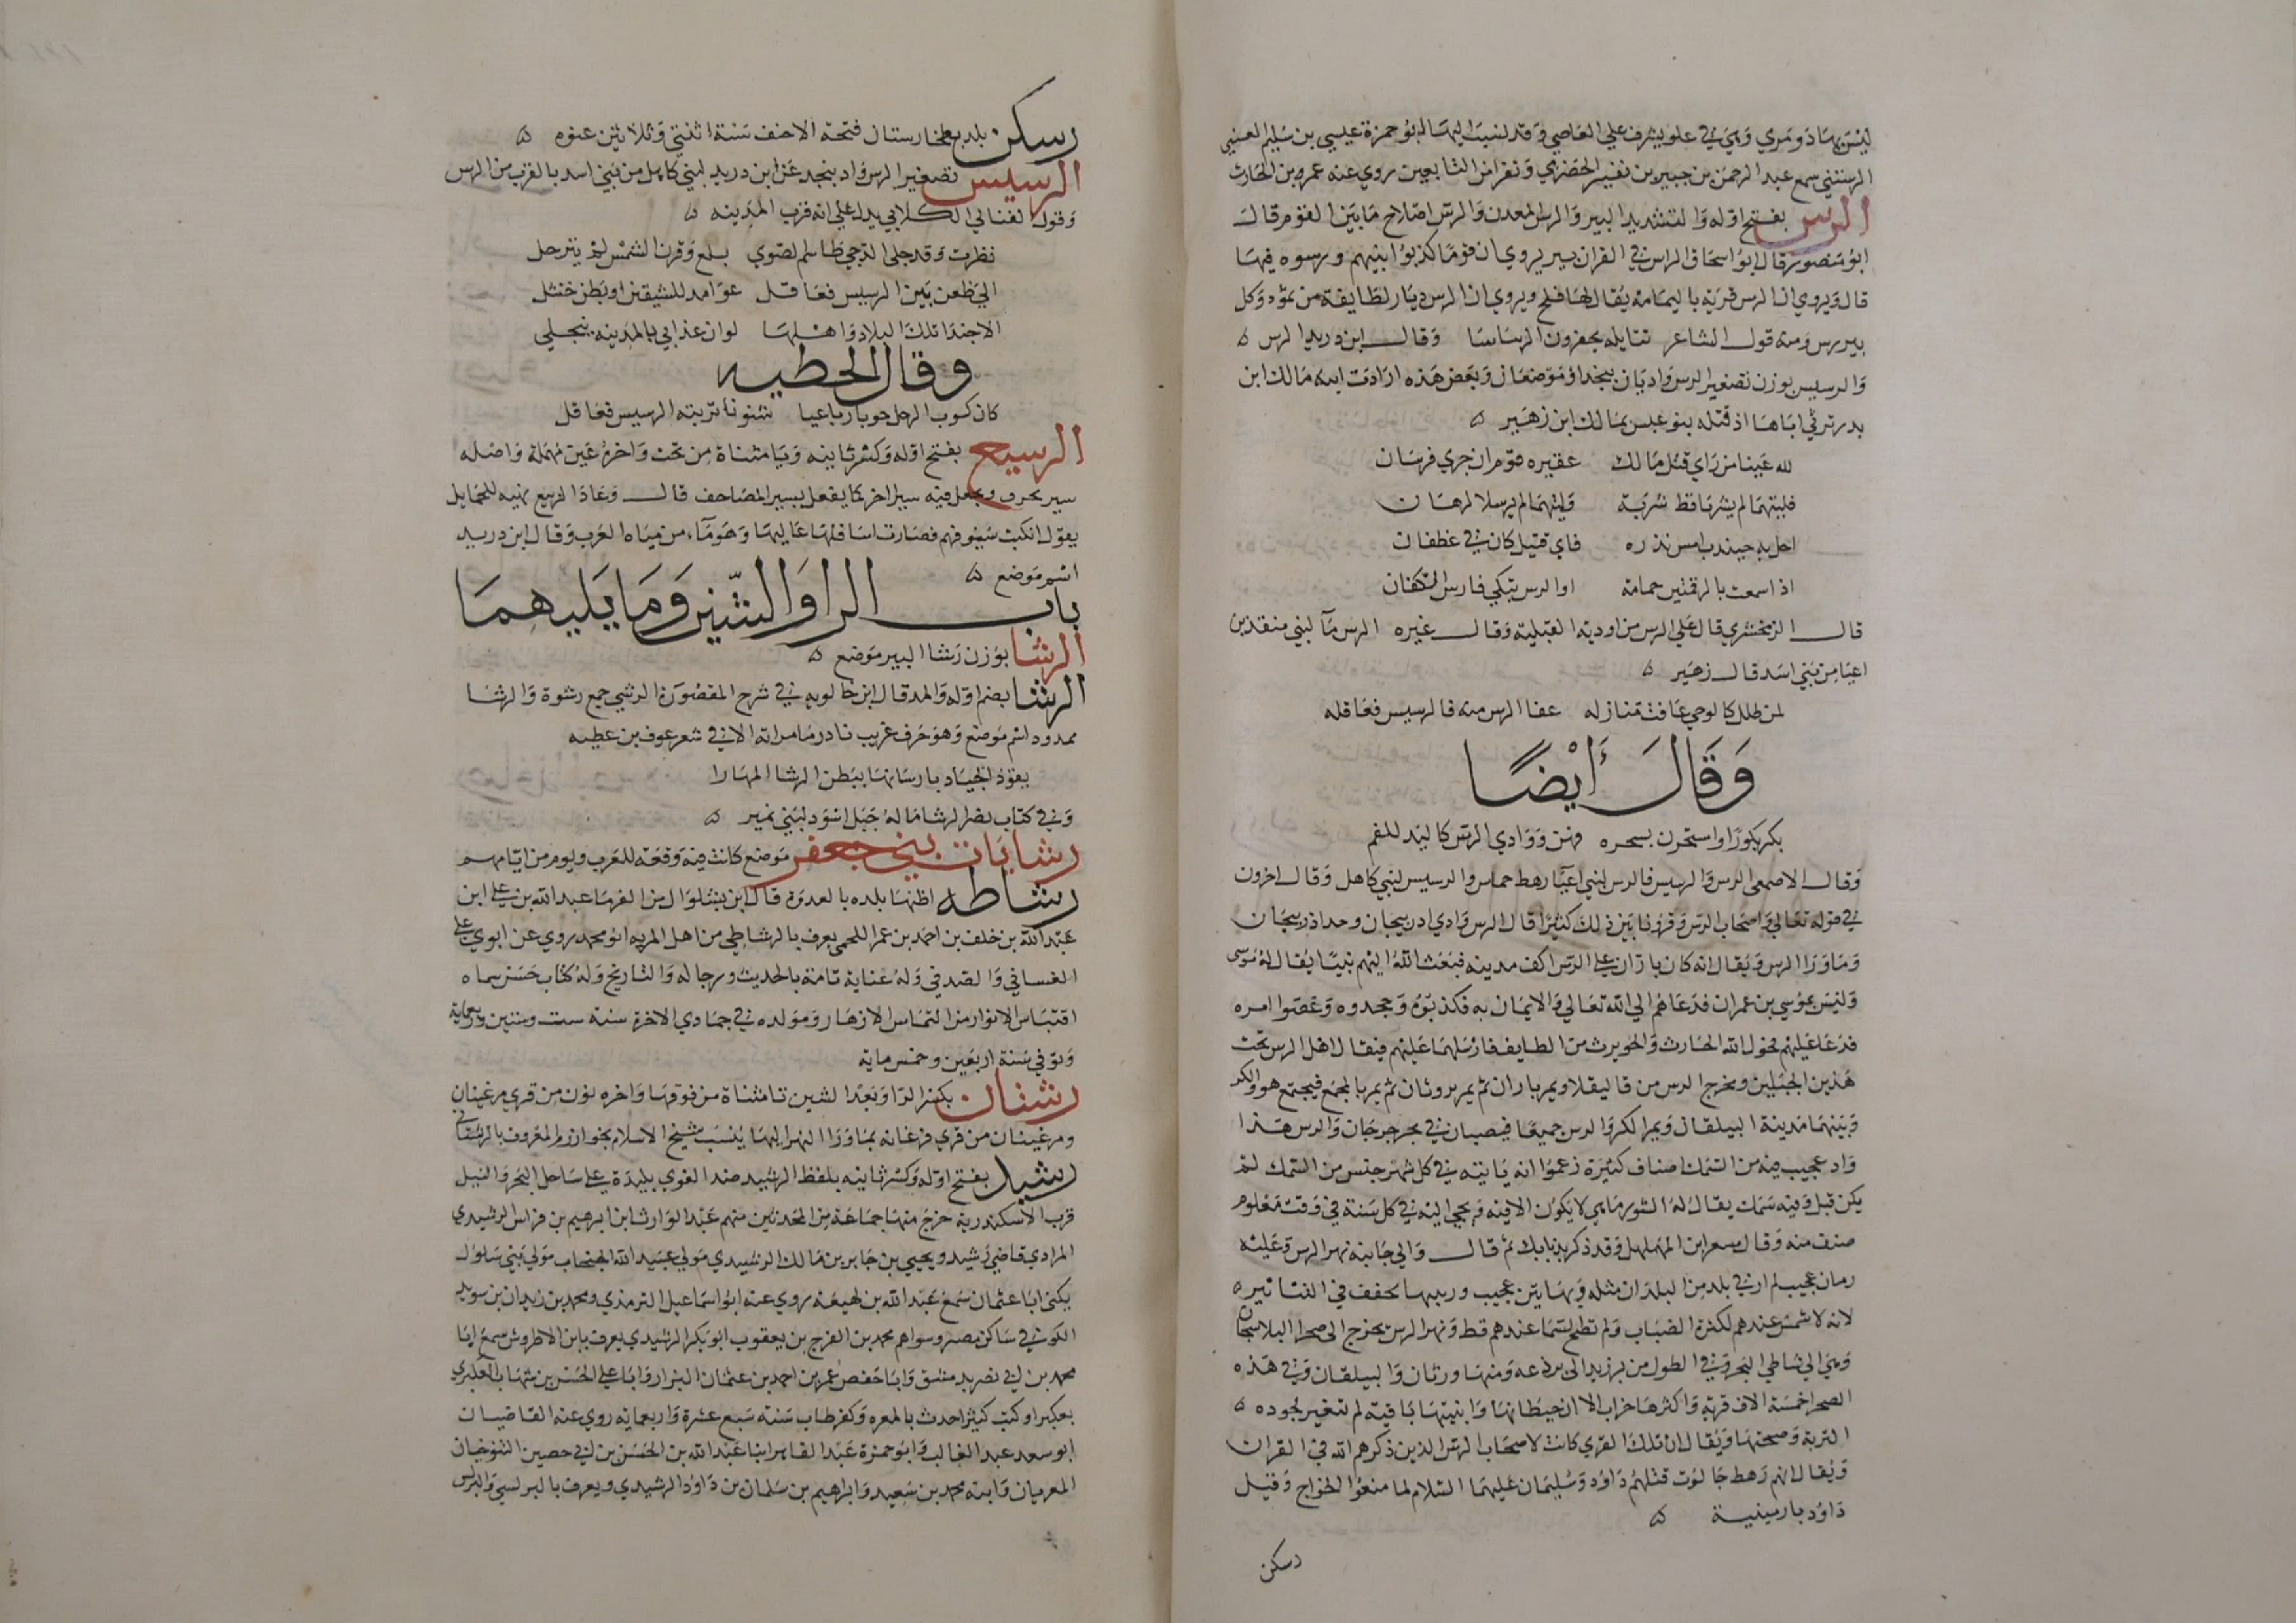 ليس بها ذو مري وهي في علو يشرف علي العاصي وقد نسب اليها ابو حمزة عيسي بن سليم العنسي
الرستني سمع عبد الرحمن بن جبير بن نفير الحضري ونفرا من التابعين روي عنه عمرو بن الحارث
الرس بفتح اوله والتشديد البير والرس المعدن والرس اصلاح ما بين القوم قال
ابو منصور قال ابو اسحاق الرس في القران بير يروي ان قوما كذبوا نبيهم ورسوه فيها
قال ويروي ان الرس قرية باليمامة يقال لها فلج ويروي ان الرس ديار لطايفة من ثمود وكل
بير رس ومنه قول الشاعر تنابلة يحفرون الرساسا وقال ابن دريد الرس ه
والرسيس بوزن تصغير الرس واديان بنجد او موضعان وبعض هذه ارادت ابنة مالك ابن
بدر ترثي اباها اذ قتله بنو عبس بمالك ابن زهير ه
لله عينا من راي قتل مالك عقيره قوم ان جري فرسان
فليتهما لم يشربا قط شربة وليتهما لم يرسلا لرهان
احل به جنيدب امس نذره فاي قتيل كان في غطفان
اذا سمعت بالرقمتين حمامة او الرس تبكي فارس الكتفان
قال الزمخشري قال علي الرس من اودية القبلية وقال غيره الرس مآ لبني منقذ بن
اعيا من بني اسد قال زهير ه
لمن طلل كالوحي عاف منازله عفا الرس منه فالرسيس فعاقله
وَقَالَ أَيْضًا
بكرن بكورا واستحرن بسحره فهن ووادي الرس كاليد للفم
وقال الاصمعي الرس والرسيس فالرس لبني اعيا رهط حماس والرسيس لبني كاهل وقال اخرون
في قوله تعالي واصحاب الرس وقرونا بين ذلك كثيرا قال الرس وادي ادربيجان وحد اذربيجان
وما ورا الرس ويقال انه كان باران علي الرس الف مدينة فبعث الله اليهم نبيا يقال له موسى
وليس بموسي بن عمران فدعاهم الي الله تعالي والايمان به فكذبوه وجحدوه وعصوا امره
فدعا عليهم فحول الله الحارث والحويرث من الطايف فارسلهما عليهم فيقال اهل الرس تحت
هذين الجبلين ومخرج الرس من قاليقلا ويمر باران ثم يمر بورثان ثم يمر بالمجمع فيجتمع هو والكر
وبينهما مدينة البيلقان ويمر الكر والرس جميعا فيصبان في بحر جرجان والرس هذا
واد عجيب فيه من السمك اصناف كثيرة زعموا انه ياتيه في كل شهر جنس من السمك لم
يكن قبل وفيه سمك يقال له الشورماهي لا يكون الا فيه ويجي اليه في كل سنة في وقت معلوم
صنف منه وقال مسعر ابن المهلهل وقد ذكر بذ بابك ثم قال والي جانبه نهر الرس وعليه
رمان عجيب لم ار في بلد من البلدان مثله وبها تين عجيب وزبيبها يجفف في التنانيره
لانه لا شمس عندهم لكثرة الضباب ولم تطلع السما عندهم قط ونهر الرس يخرج الى صحرا البلاسجان
وهي الي شاطي البحر وفي الطول من برزند الى برذعه ومنها ورثان والبيلقان وفي هذه
الصحرا خمسة الاف قرية واكثرها خراب الا ان حيطانها وابنيتها باقية لم تتغير لجوده ه
التربة وصحتها ويقال ان تلك القري كانت لاصحاب الرس الذين ذكرهم الله في القران
ويقال انهم رهط جالوت قتلهم داود وسليمان عليهما السلام لما منعوا الخراج وقتل
داود بارمينية ه
رسكن
رسكن بلد بطخارستان فتحه الاحنف سنة اثنتي وثلاثين عنوه ه
الرسيس تصغير الرس واد بنجد عن ابن دريد لبني كاهل من بني اسد بالقرب من الرس
وقول القتال الكلابي يدل علي انه قرب المدينه ه
نظرت وقد جلى الدجي طاسم الصوي بسلع وقرن الشمس لم يترحل
الي ظعن بين الرسيس فعاقل عوامد للشيقين او بطن خنثل
الا حبذا تلك البلاد واهلها لو ان عذابي بالمدينه ينجلي
وقال الحطيه
كان كسوب الرحل جوبا رباعيا شنونا تربته الرسيس فعاقل
الرسيع بفتح اوله وكسر ثانيه ويا مثناة من تحت واخره عين مهملة واصله
سير يحرف ويجعل فيه سير اخر كما يفعل بسير المصاحف قال وعاد الرسيع نهيه للحمايل
يقول انكبت سيوفهم فصارت اسافلها عاليها وهو مآء من مياه العرب وقال ابن دريد
اسم موضع ه
باب الرا والشين وما يليهما
الرشا بوزن رشا البير موضع ه
الرشا بضم اوله والمد قال ابن خالويه في شرح المقصورة الرشي جمع رشوة والرشا
ممدود اسم موضع وهو حرف غريب نادر ما مر الا في شعر عوف بن عطيه
يقود الجياد بارسانها ببطن الرشا المهارا
وفي كتاب نصر الرشا ماله جبل اسود لبني نمير ه
رشايات بني جعفر موضع كانت فيه وقعة للعرب ويوم من ايامهم
رشاطه اظنها بلده بالعدوة قال ابن بشكوال من الفرما عبد الله بن علي ابن
عبد الله بن خلف بن احمد بن عمر اللخمي يعرف بالرشاطي من اهل المريه ابو محمد روي عن ابوي علي
الغساني والصدفي وله عناية تامة بالحديث ورجاله والتاريخ وله كتاب حسن سماه
اقتباس الانوار من التماس الازهار ومولده في جمادي الاخرة سنة ست وستين واربعماية
وتوفي سنة اربعين وخمس ماية
رشتان بكسر الرا وبعد الشين تا مثناة من فوقها واخره نون من قري مرغينان
ومرغينان من قري فرغانه بما ورا النهر اليها ينسب شيخ الاسلام بخوارزم المعروف بالرشتاني
رشيد بفتح اوله وكسر ثانيه بلفظ الرشيد ضد الغوي بليدة علي ساحل البحر والنيل
قرب الاسكندرية خرج منها جماعة من المحدثين منهم عبد الوارث ابن ابرهيم بن فراس الرشيدي
المرادي قاضي رشيد ويحيي بن جابر بن مالك الرشيدي مولي عبيد الله الحبحاب مولي بني سلول
يكنى ابا عثمان سمع عبد الله بن لهيعه روي عنه ابو اسماعيل الترمذي ومحمد بن زيدان بن سويد
الكوفي ساكن مصر وسواهم محمد بن الفرج بن يعقوب ابو بكر الرشيدي يعرف بابن الاطروش سمع ابا
محمد بن ابي نصر بدمشق وابا حفص عمر بن احمد بن عثمان البزار وابا علي الحسن بن شهاب العكبري
بعكبرا وكتب كثيرا حدث بالمعره وكفرطاب سنة سبع عشرة واربعمايه روي عنه القاضيان
ابو سعد عبد الغالب وابو حمزة عبد القاهر ابنا عبد الله بن المحسن بن ابي حصين التنوخيان
المعريان وابنه محمد بن سعيد وابراهيم بن سلمان بن داود الرشيدي ويعرف بالبرلسي والبرلس